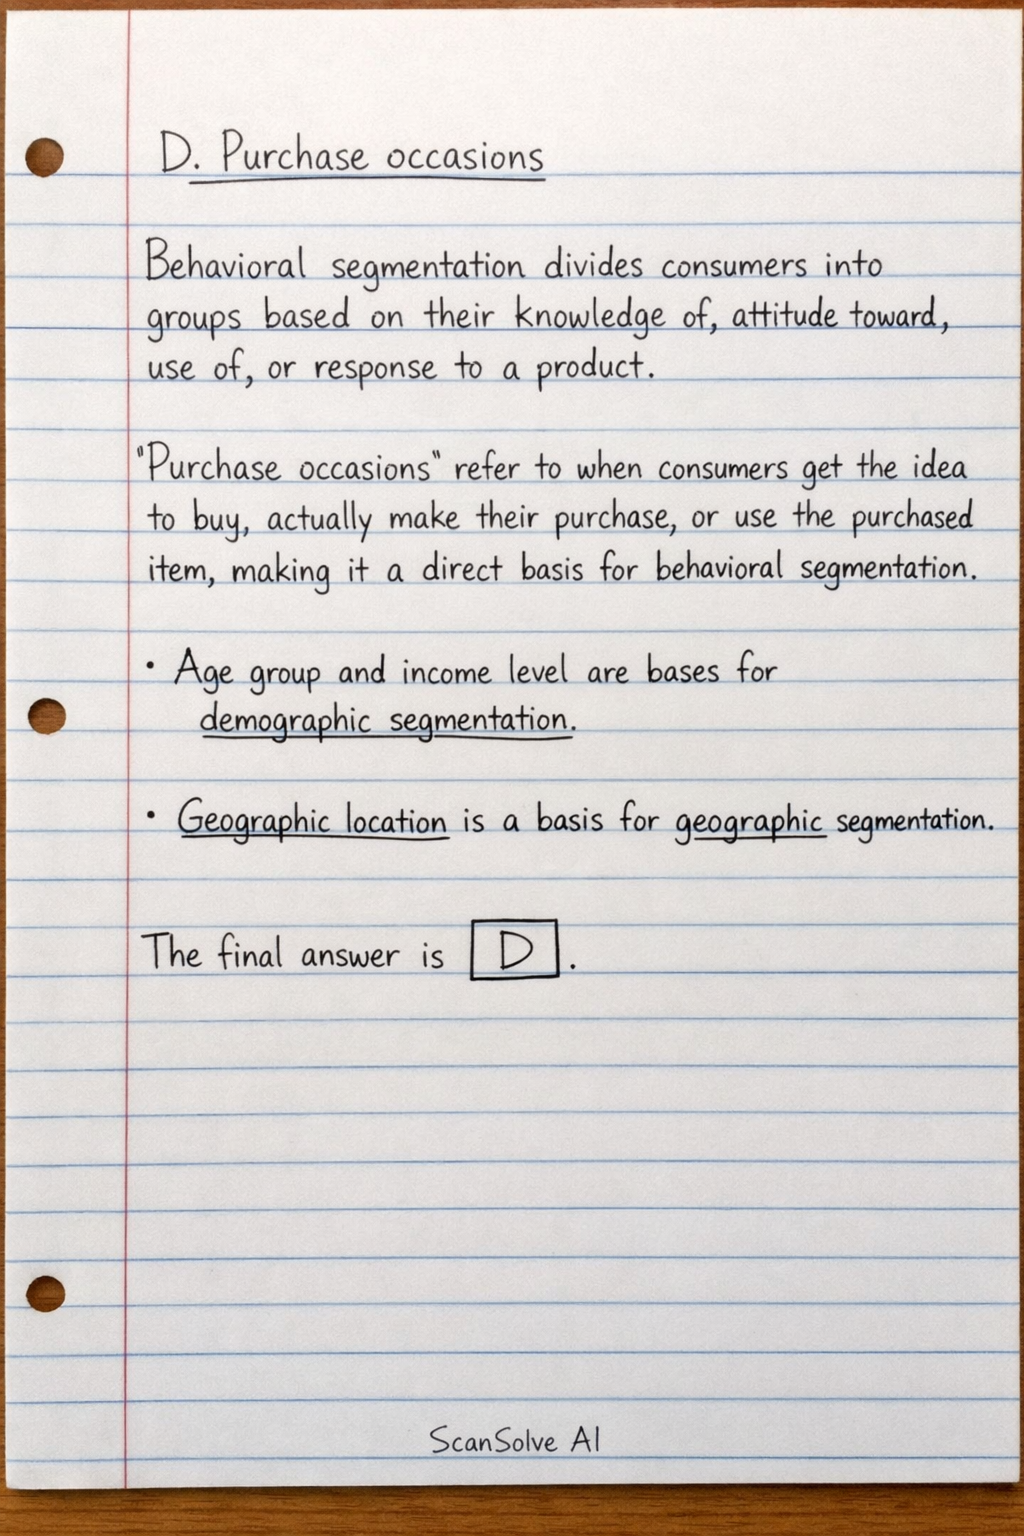 D. Purchase occasions
Behavioral segmentation divides consumers into
groups based on their knowledge of, attitude toward,
use of, or response to a product.
"Purchase occasions" refer to when consumers get the idea
to buy, actually make their purchase, or use the purchased
item, making it a direct basis for behavioral segmentation.
• Age group and income level are bases for
demographic segmentation.
• Geographic location is a basis for geographic segmentation.
The final answer is D.
ScanSolve AI